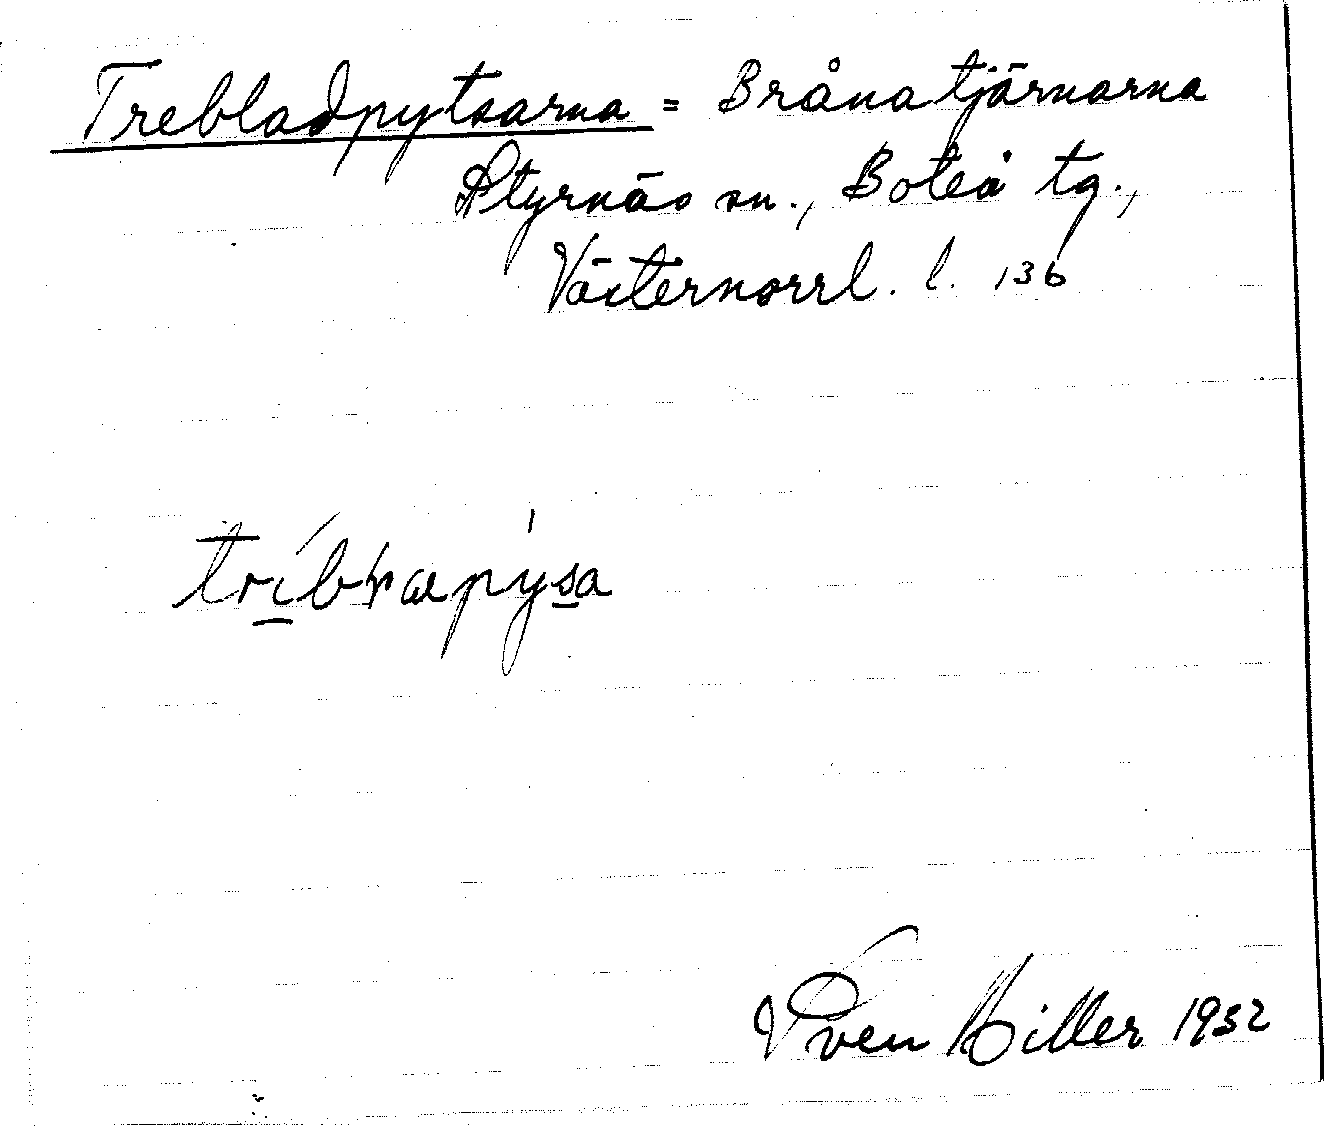 Trebladpytsarna = Brånatjärnarna
Styrnäs sn., Boteå tg.,
Västernorrl. l. 136
Sven Hiller 1932